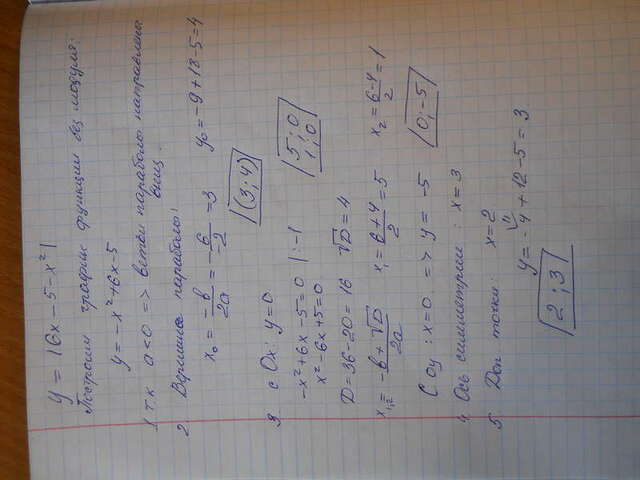 y = |6x - 5 - x²|
Построим график функции без модуля:
y = -x² + 6x - 5
1 т.к a<0 => ветви параболы направлены
вниз.
2. Вершина параболы:
x₀ = -b/2a = -6/-2 = 3 y₀ = -9 + 18 - 5 = 4
(3; 4)
3 с Ox: y = 0
-x² + 6x - 5 = 0 | : -1
x² - 6x + 5 = 0
5; 0
1; 0
D = 36 - 20 = 16 √D = 4
x₁,₂ = -b ± √D/2a x₁ = 6+4/2 = 5 x₂ = 6-4/2 = 1
С Oy: x = 0 => y = -5 0; -5
4. Ось симметрии: x = 3
5 Доп точки: x = 2
y = -4 + 12 - 5 = 3
2; 3